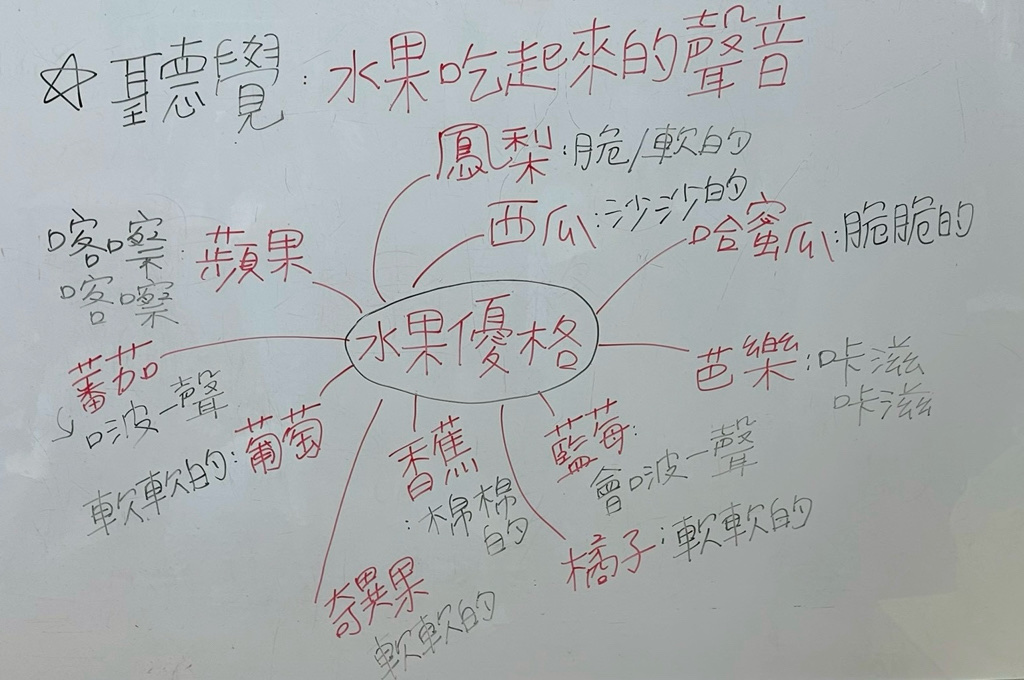 ☆聽覺:水果吃起來的聲音
鳳梨:脆/軟的
西瓜:沙沙的
哈蜜瓜:脆脆的
喀嚓:蘋果
喀嚓
水果優格
蕃茄
啵一聲
芭樂:咔滋
咔滋
軟軟的:葡萄
香蕉
:棉棉
的
藍莓:
會啵一聲
橘子:軟軟的
奇異果
軟軟的